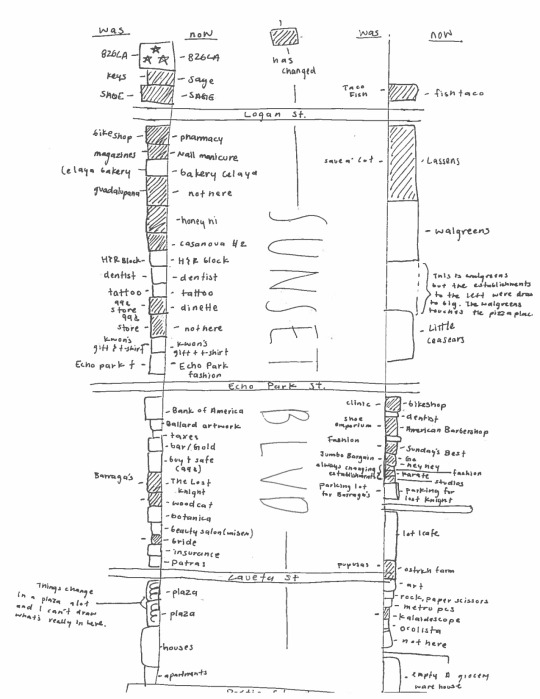 was
now
has
changed
was
now
826LA
826LA
keys
Sage
SHOE
SAGE
Taco
Fish
fish taco
Logan St.
bikeshop
pharmacy
magazines
Nail manicure
Celaya bakery
bakery Celaya
guadalupana
not here
honey hi
casanova #2
H&R Block
H&R block
dentist
dentist
tattoo
tattoo
99¢
store
dinette
99¢
store
not here
Kwon's
gift & t-shirt
Kwon's
gift & t-shirt
Echo park f
Echo Park
fashion
save a' lot
Lassens
walgreens
This is walgreens
but the establishments
to the left were draw
to big. The walgreens
touches the pizza place
Little
Ceasears
SUNSET
BLVD
Echo Park St.
Bank of America
Ballard artwork
taxes
bar/Gold
buy & safe
(99¢)
Barraga's
The Lost
Knight
woodcat
botanica
beauty salon (
bride
insurance
patras
clinic
bikeshop
dentist
shoe
emporium
American Barbershop
Fashion
Sunday's Best
Jumbo Bargain
Go
always changing
establishments
hey hey
fashion
karate
studios
parking lot
for Barraga's
parking for
lost Knight
lot 1 cafe
pupusas
ostrich farm
Laveta St
Things change
in a plaza alot
and I can't draw
what's really in here.
plaza
plaza
houses
apartments
art
rock, paper scissors
metro pcs
Kalaidescope
ocolista
not here
empty A grocery
ware house